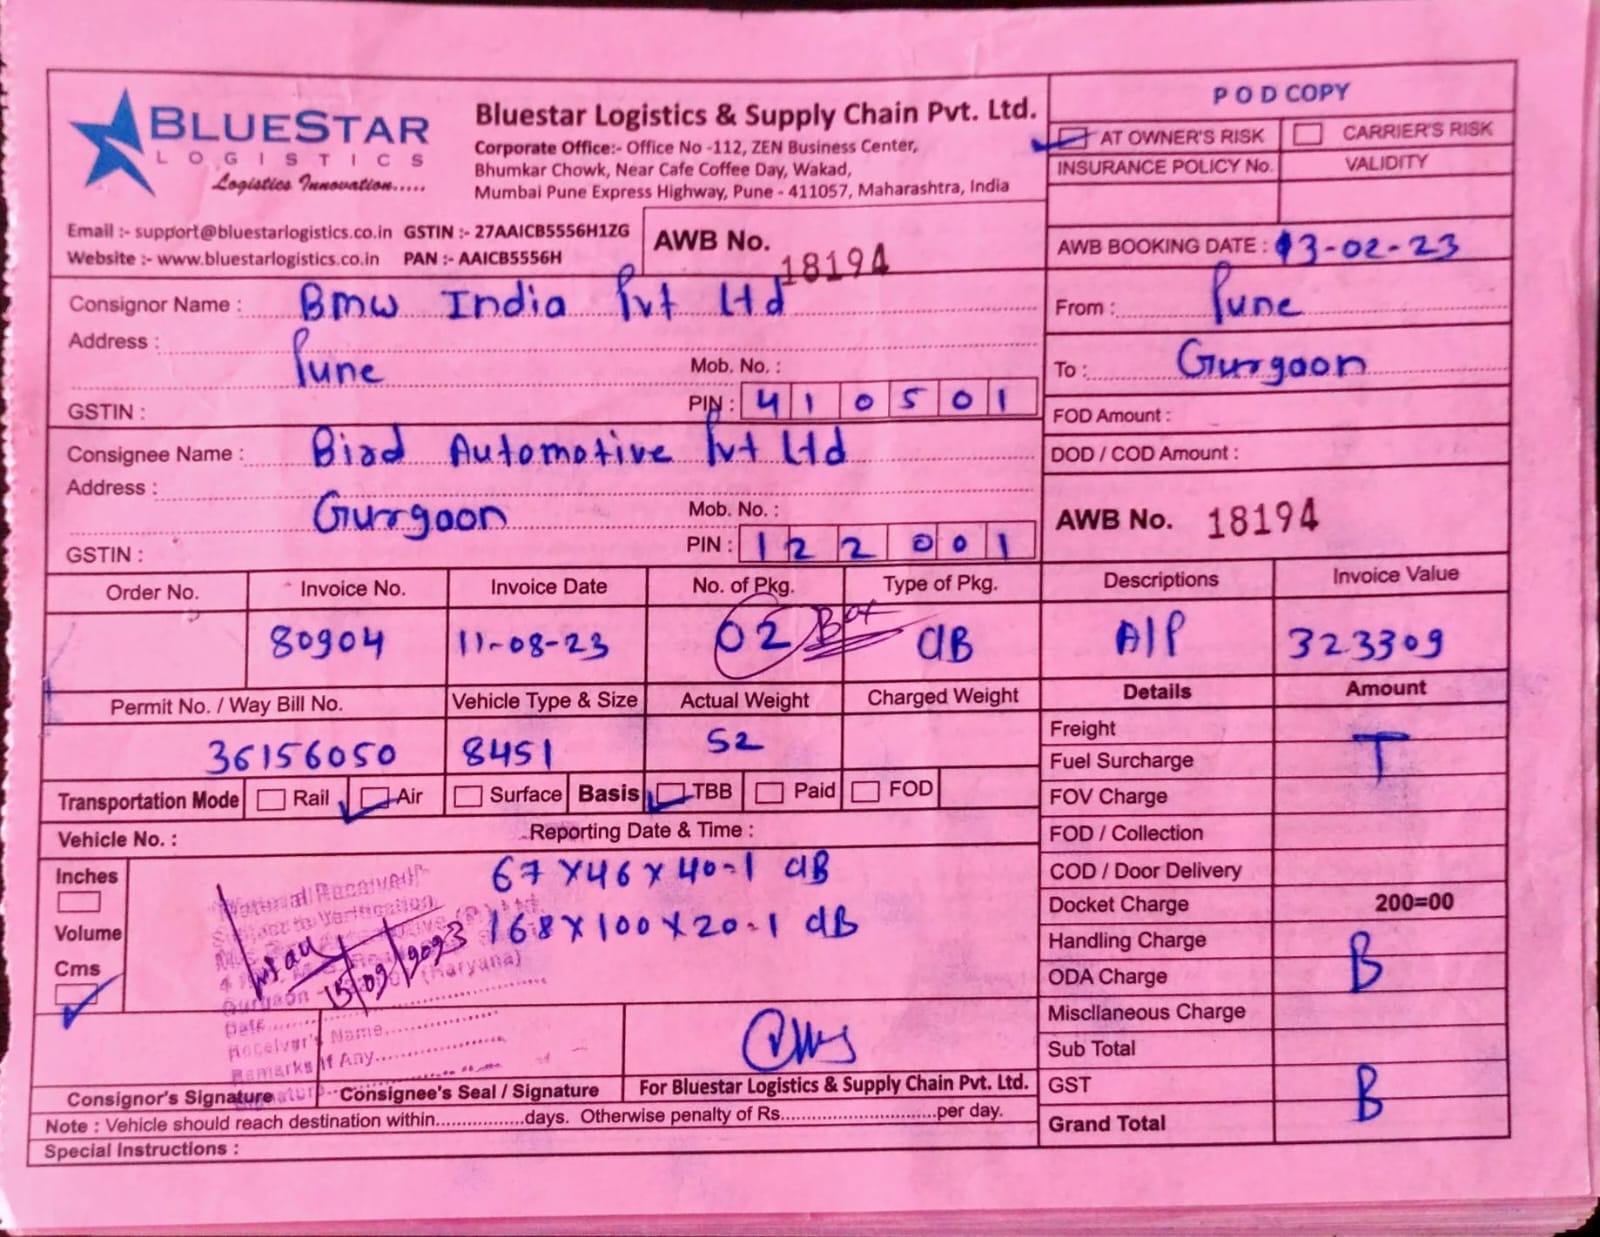 BLUESTAR
LOGISTICS
Logistics Innovation.....
Bluestar Logistics & Supply Chain Pvt. Ltd.
Corporate Office:- Office No -112, ZEN Business Center,
Bhumkar Chowk, Near Cafe Coffee Day, Wakad,
Mumbai Pune Express Highway, Pune - 411057, Maharashtra, India
POD COPY
AT OWNER'S RISK CARRIER'S RISK
INSURANCE POLICY No. VALIDITY
Email :- support@bluestarlogistics.co.in GSTIN :- 27AAICB5556H1ZG
Website :- www.bluestarlogistics.co.in PAN :- AAICB5556H
AWB No. 18194
AWB BOOKING DATE : 13-02-23
Consignor Name : Bmw India Pvt Ltd
Address : Pune
Mob. No. :
GSTIN : PIN : 410501
From : Pune
To : Gurgaon
FOD Amount :
DOD / COD Amount :
Consignee Name : Bird Automotive Pvt Ltd
Address : Gurgaon
Mob. No. :
GSTIN : PIN : 122001
AWB No. 18194
Order No. Invoice No. Invoice Date No. of Pkg. Type of Pkg. Descriptions Invoice Value
80904 11-08-23 02 Box CB A/P 323309
Permit No. / Way Bill No. Vehicle Type & Size Actual Weight Charged Weight Details Amount
36156050 8451 52
Transportation Mode Rail Air Surface Basis TBB Paid FOD
Vehicle No. : Reporting Date & Time :
Inches
Volume
Cms
67 X 46 X 40-1 CB
168 X 100 X 20-1 CB
Material Received
Subject to Verification
Gurgaon (Haryana)
15/09/2023
Date
Receiver's Name
Remarks If Any
Freight
Fuel Surcharge T
FOV Charge
FOD / Collection
COD / Door Delivery
Docket Charge 200=00
Handling Charge
ODA Charge B
Miscllaneous Charge
Sub Total
GST B
Grand Total
Consignor's Signature Consignee's Seal / Signature For Bluestar Logistics & Supply Chain Pvt. Ltd.
Note : Vehicle should reach destination within.................days. Otherwise penalty of Rs............................per day.
Special Instructions :